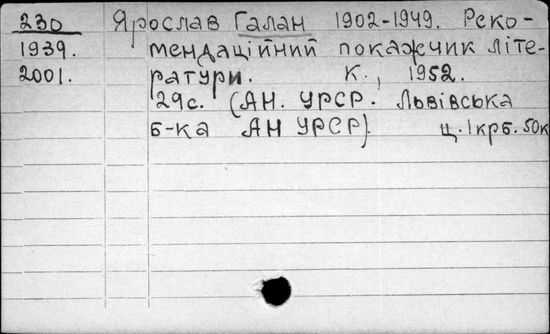 230 Ярослав Галан 1902-1949. Реко-
1939. мендаційний покажчик літе-
2001. ратури. К., 1952.
29с. (АН. УРСР. Львівська
б-ка АН УРСР). ц. 1крб. 50к